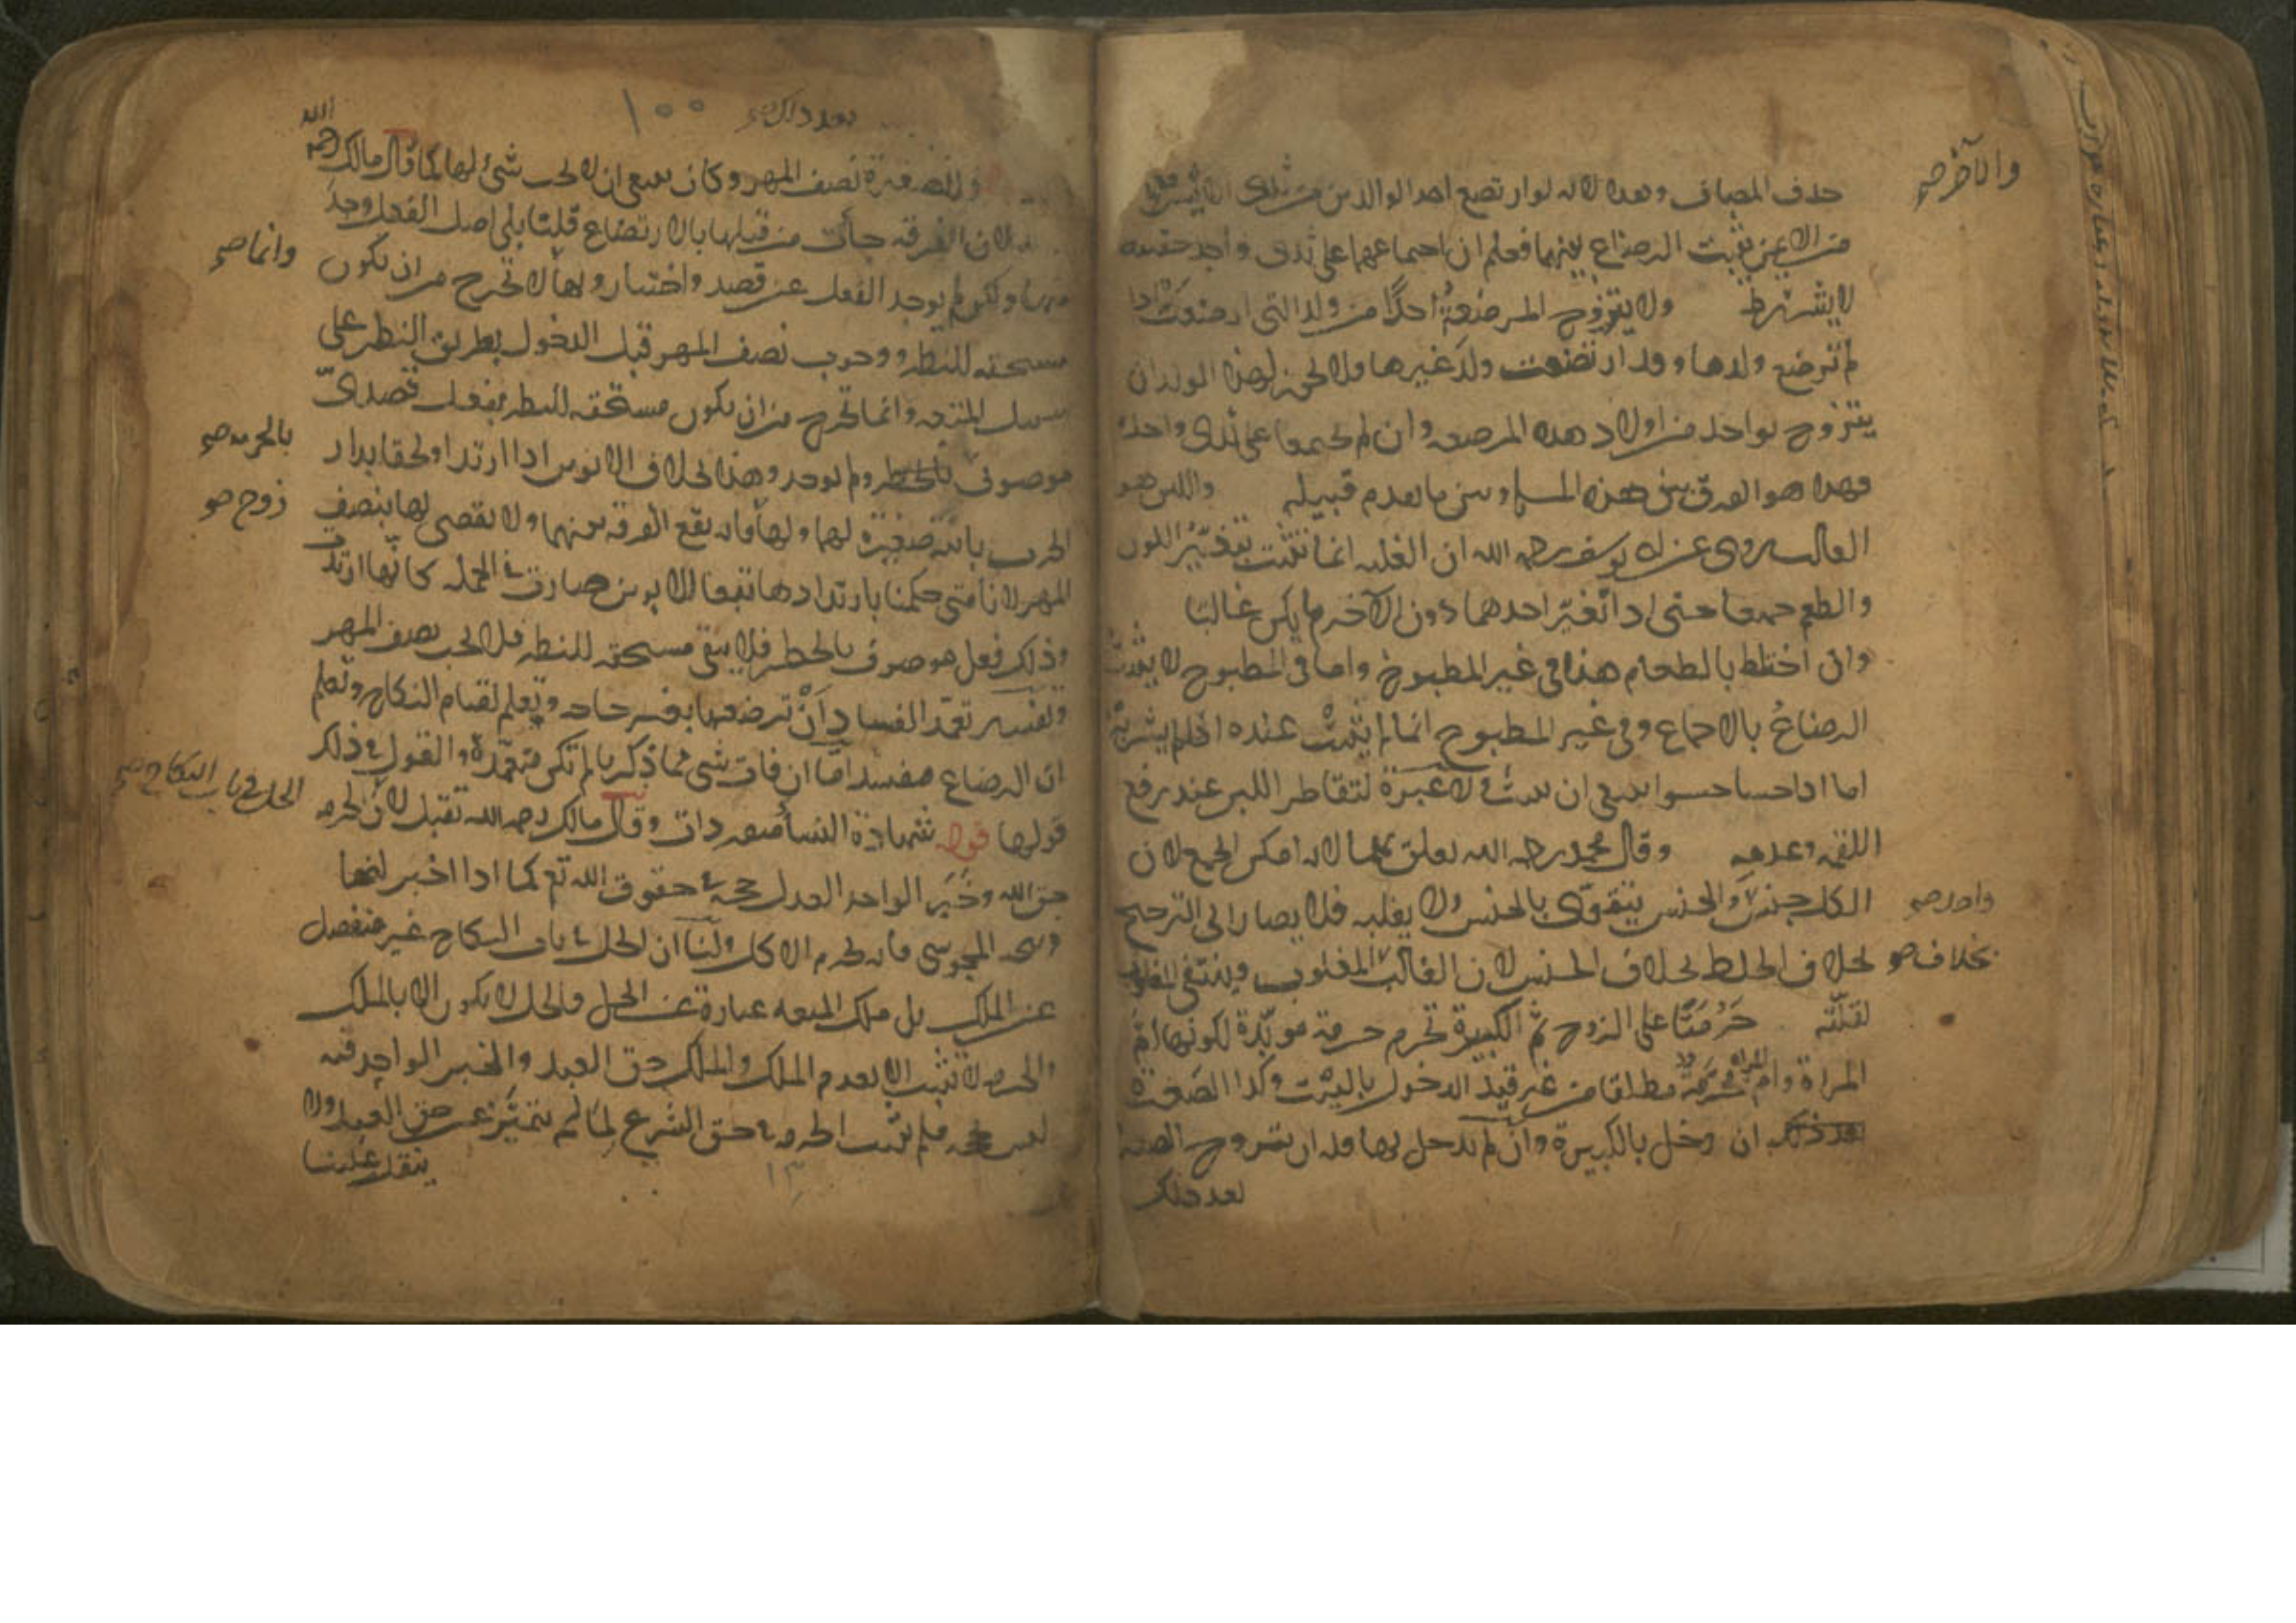 حذف المضاف وهذا لانه لو ارتضع احد الوالدين من ثدى
والآخر صح
من الاخرى يثبت الرضاع بينهما فعلم ان اجتماعهما على ثدى واحد حقيقه
لا يشترط ولا يتزوج المرضعة احدا من ولد التى ارضعت اذا
لم ترضع ولدها وقد ارتضعت ولد غيرها فلا لهذا الولد ان
يتزوج بواحد من اولاد هذه المرضعه وان لم يجتمعا على ثدى واحده
فهذا هو الفرق بين هذه المسله وبين ما تقدم قبيله واللبن هو
الغالب روى عن ابى يوسف رحمه الله ان الغلبه انما تثبت بتغير اللون
والطعم جميعا حتى اذا تغير احدهما دون الآخر لم يكن غالبا
وان اختلط بالطعام هذا فى غير المطبوخ واما فى المطبوخ لا يثبت
الرضاع بالاجماع وفى غير المطبوخ انما لم يثبت عنده اذا لم يشربه
اما اذا حسا حسوا ينبغى ان يثبت لا عبرة لتقاطر اللبن عند رفع
اللقمه وعدمه وقال محمد رحمه الله تعلق بهما لانه امكن الجمع لان
الكل جنس والجنس يتقوى بالجنس ولا يغلبه فلا يصار الى الترجيح
واحد صح
بخلاف الخلط بخلاف الجنس لان الغالب المغلوب وينتفى المغلوب
بخلاف صح
لقلته حرمتا على الزوج ثم الكبيرة تحرم حرمة مؤبدة لكونها ام
المراة وام المراة محرمة مطلقا من غير قيد الدخول بالبنت وكذا الصغيرة
ان دخل بالكبيرة وان لم يدخل بها فله ان يتزوج الصغيره
بعد ذلك
بعد ذلك صح ١٠٠
وللصغيرة نصف المهر وكان ينبغى ان لا يجب شئ لها كما قال مالك رحمه الله
لان الفرقه جأت من قبلها بالارتضاع قلنا بلى اصل الفعل وجد
منها ولكن لم يوجد الفعل عن قصد واختيار وبها لا تخرج من ان تكون
وانما صح
مستحقه للنظر ووجوب نصف المهر قبل الدخول بطريق النظر على
سبيل المتعه وانما تخرج من ان تكون مستحقه للنظر بفعل قصدى
موصوف ولم يوجد وهذا بخلاف الابوين اذا ارتدا ولحقا بدار
بالحرمه صح
الحرب بابنة صغيرة لهما ولها فانه يقع الفرقه بينهما ولا يقضى لها بنصف
زوج صح
المهر لانا متى حكمنا بارتدادها تبعا للابوين صارت فى الحكم كانها ارتدت
وذلك فعل موصوف بالحظر فلا يبقى مستحقه للنظر فلا يجب نصف المهر
وتفسير تعمد الفساد أن ترضعها بغير حاجه وتعلم لقيام النكاح وتعلم
ان الرضاع مفسد اما ان فات شى مما ذكر لم تكن متعمدة والقول فى ذلك
قولها قوله شهادة النسأ منفردات وقال مالك رحمه الله تقبل لان الحرمه
الحل فى باب النكاح صح
حق الله وخبر الواحد العدل حجه فى حقوق الله تع كما اذا اخبر انها
ذبيحه المجوسى فانه يحرم الاكل ولنا ان الحل فى باب النكاح غير منفصل
عن الملك بل ملك المتعه عبارة عن الحل والحل لا يكون الا بالملك
والحرمه لا تثبت الا بعدم الملك والملك حق العبد والخبر الواحد فيه
ليس بحجه فلم يثبت الحرمه فى حق الشرع لما لم يتميز عن حق العبد ولا
ينقلب علينا
١٣